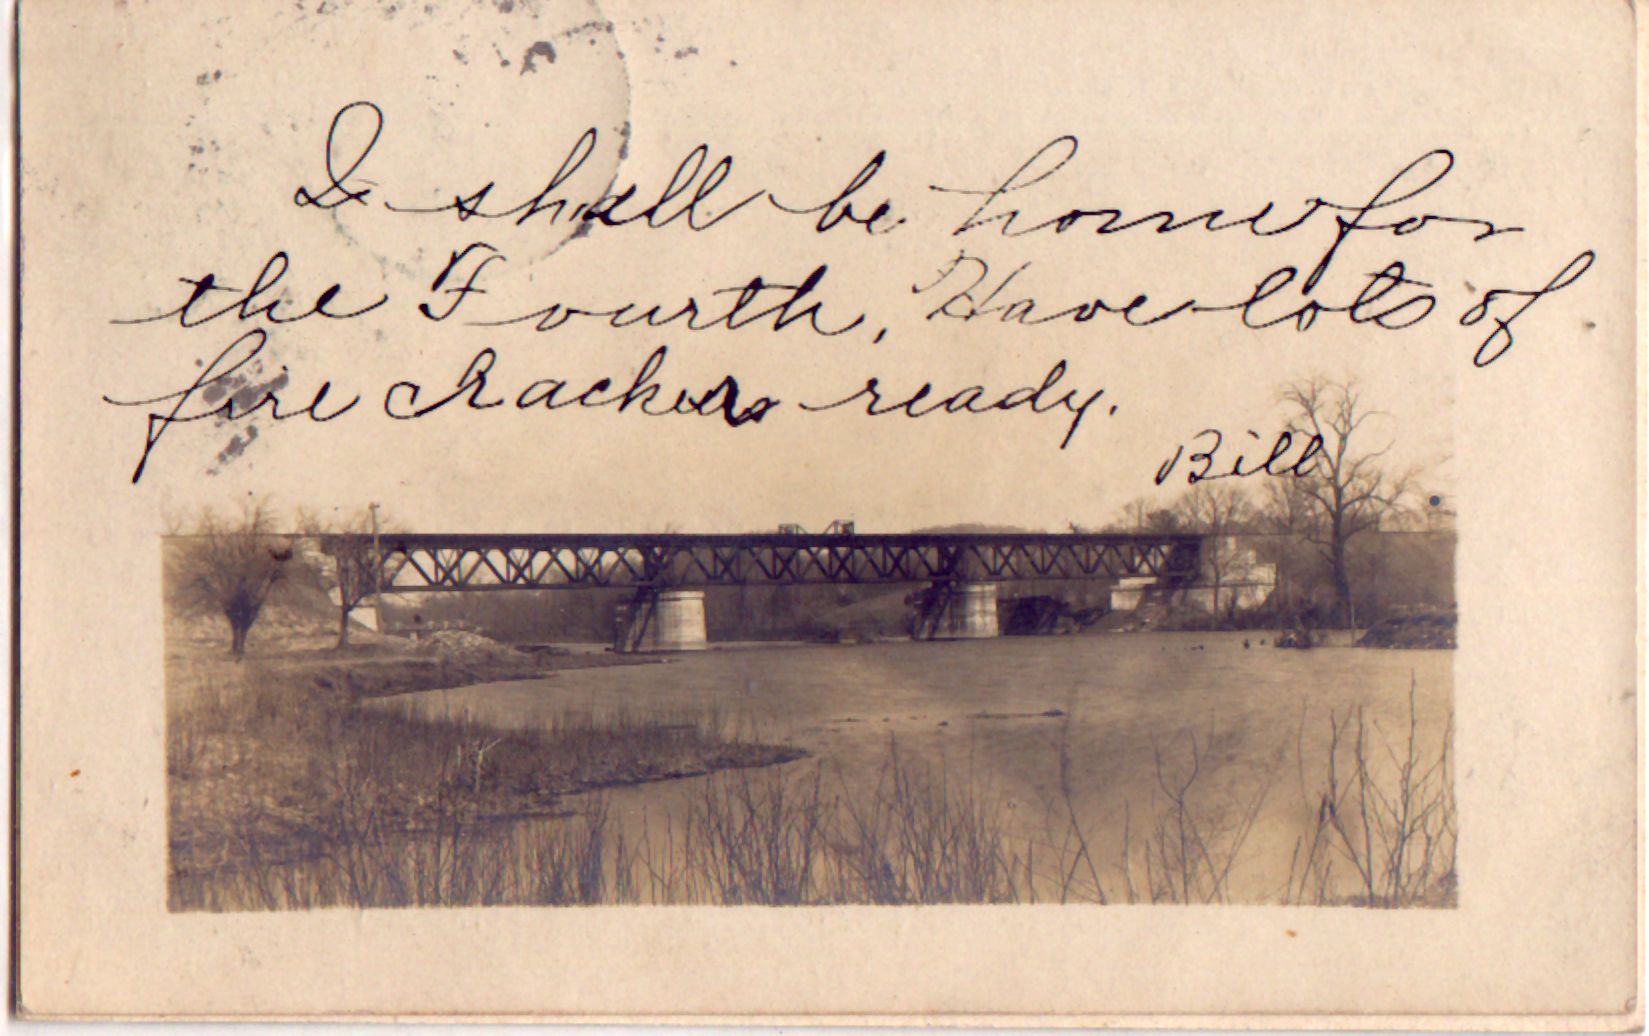 I shall be home for
the Fourth, Have lots of
fire crackers ready.
Bill